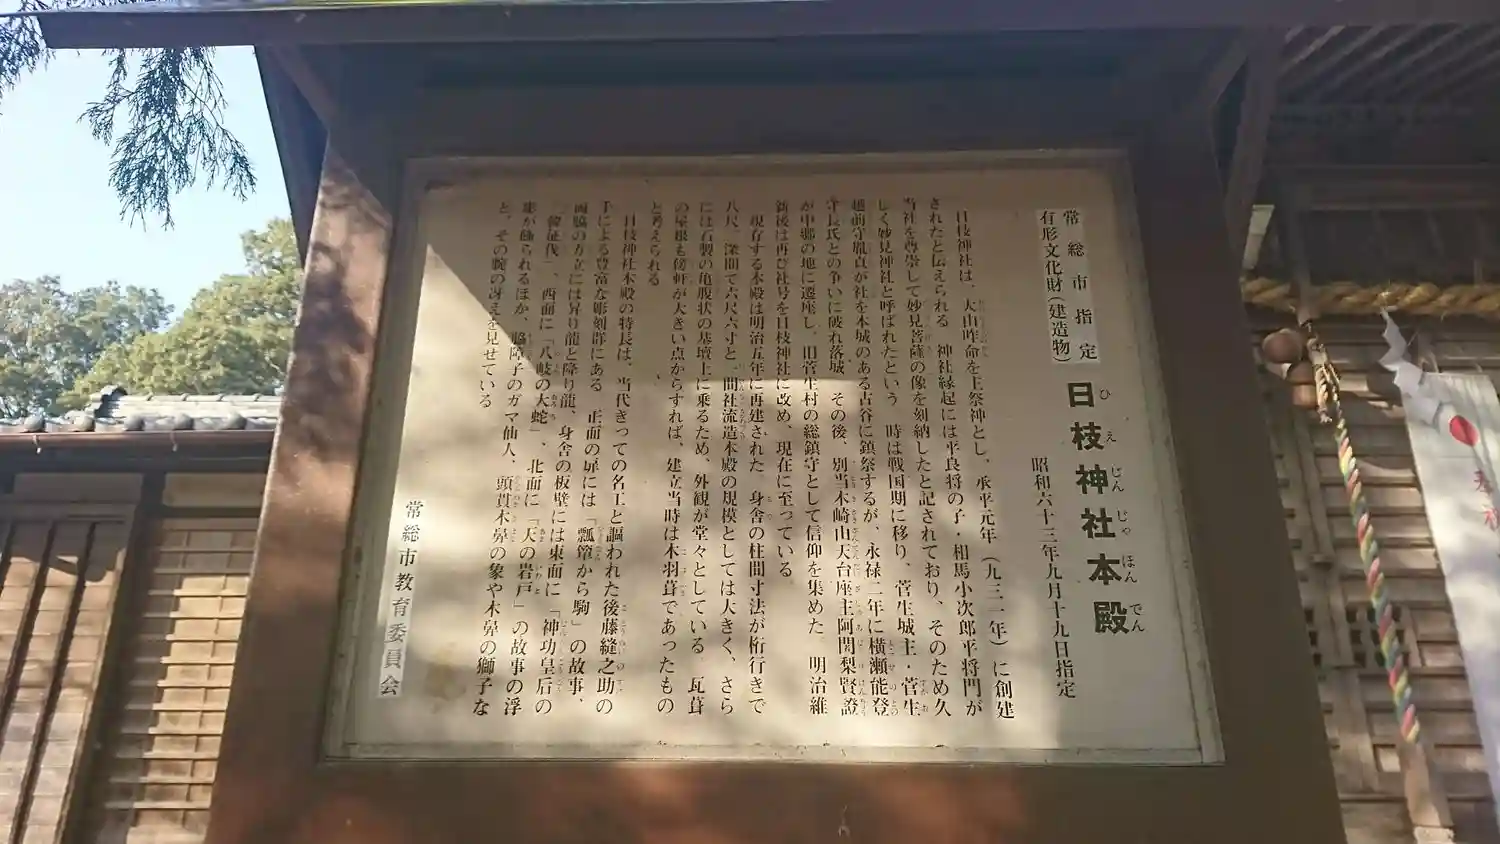 常総市指定
有形文化財(建造物)
日枝神社本殿
ひえじんじゃほんでん
昭和六十三年九月十九日指定
日枝神社は、大山咋命を主祭神とし、承平元年(九三一年)に創建
されたと伝えられる 神社縁起には平良将の子・相馬小次郎平将門が
当社を尊崇して妙見菩薩の像を刻納したと記されており、そのため久
しく妙見神社と呼ばれたという 時は戦国期に移り、菅生城主・菅生
越前守胤貞が社を本城のある古谷に鎮祭するが、永禄二年に横瀬能登
守長氏との争いに破れ落城、その後、別当木崎山天台座主阿闍梨賢證
が中郷の地に遷座し、旧菅生村の総鎮守として信仰を集めた 明治維
新後は再び社号を日枝神社に改め、現在に至っている
現存する本殿は明治五年に再建された 身舎の柱間寸法が桁行きで
八尺、深間で六尺六寸と、一間社流造本殿の規模としては大きく、さら
には石製の亀腹状の基壇上に乗るため、外観が堂々としている 瓦葺
の屋根も傍軒が大きい点からすれば、建立当時は木羽葺であったもの
と考えられる
日枝神社本殿の特長は、当代きっての名工と謳われた後藤縫之助の
手による豊富な彫刻群にある 正面の扉には「瓢箪から駒」の故事、
両脇の方立には昇り龍と降り龍、身舎の板壁には東面に「神功皇后の
三韓征伐」、西面に「八岐の大蛇」、北面に「天の岩戸」の故事の浮
彫が飾られるほか、脇障子のガマ仙人、頭貫木鼻の象や木鼻の獅子な
ど、その腕の冴えを見せている
常総市教育委員会